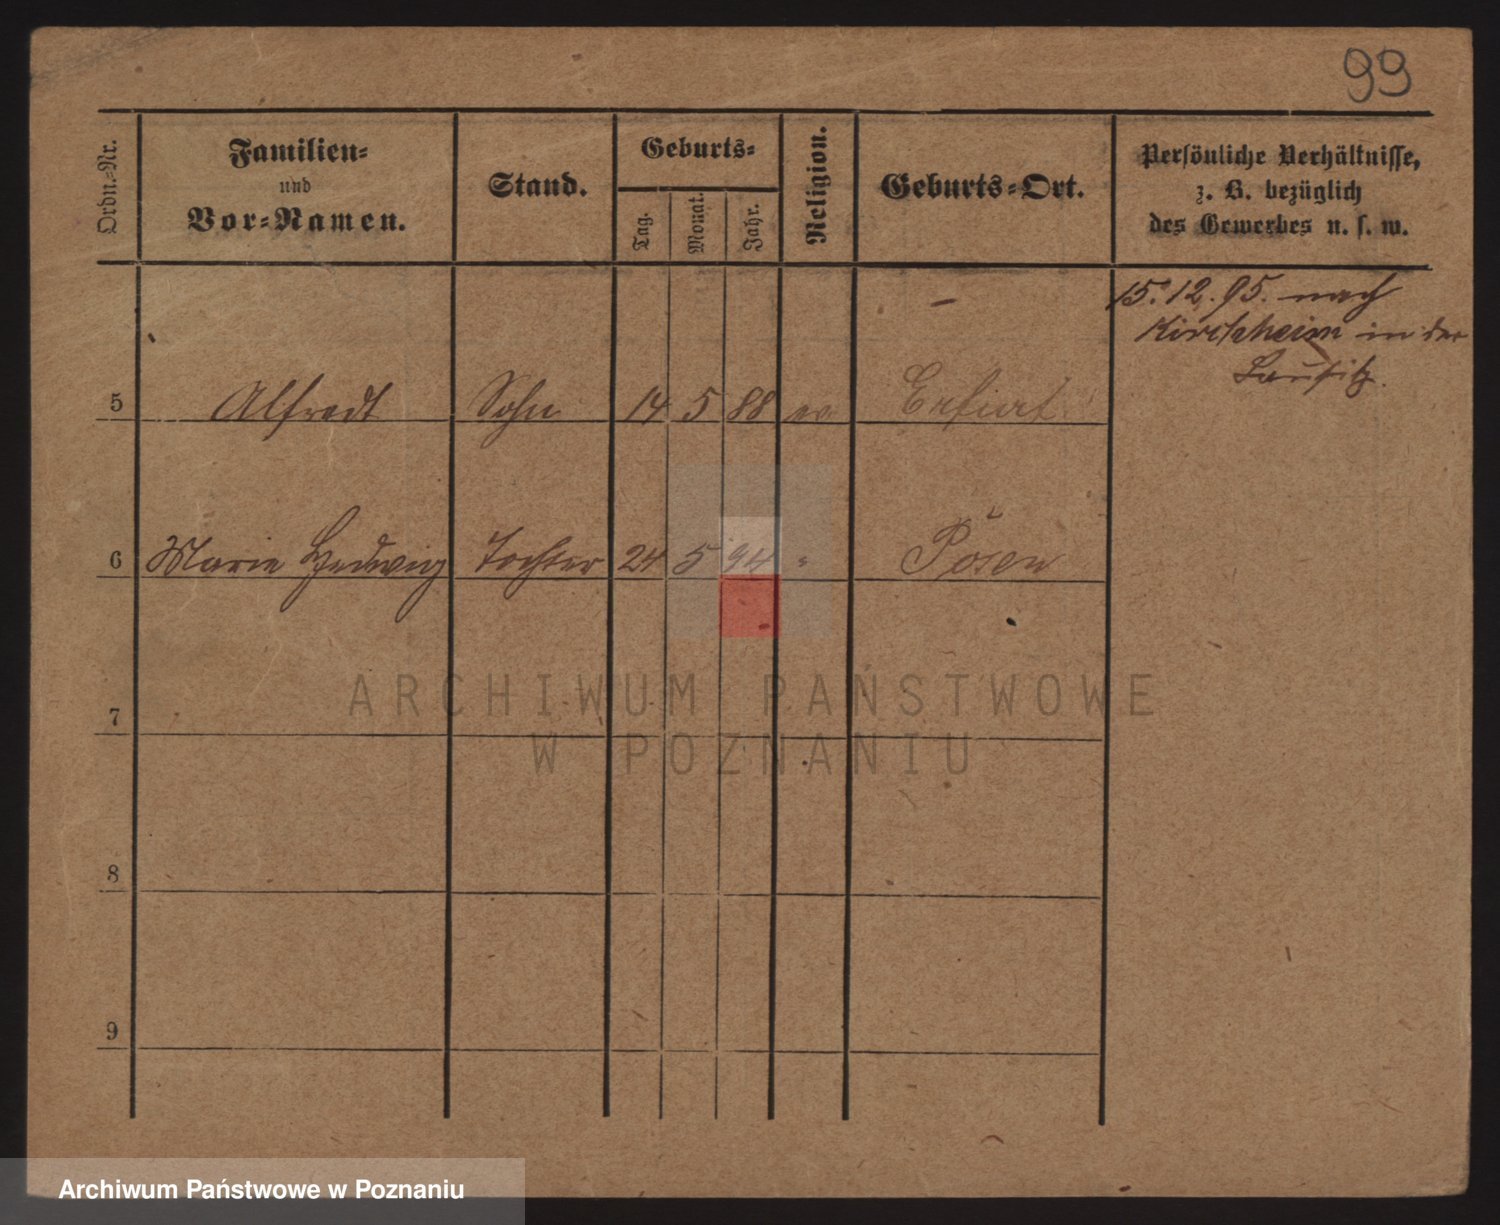 99
Ordn.-Nr.
Familien-
und
Vor-Namen.
Stand.
Geburts-
Tag.
Monat.
Jahr.
Religion.
Geburts-Ort.
Persönliche Verhältnisse,
z. B. bezüglich
des Gewerbes u. s. w.
15.12.95. nach
Kirchheim in der
Lausitz.
5 Alfredt Sohn 14 5 88 ev Erfurt
6 Marie Hedwig Tochter 24 5 94 " Posen
7
8
9
ARCHIWUM PAŃSTWOWE
W POZNANIU
Archiwum Państwowe w Poznaniu